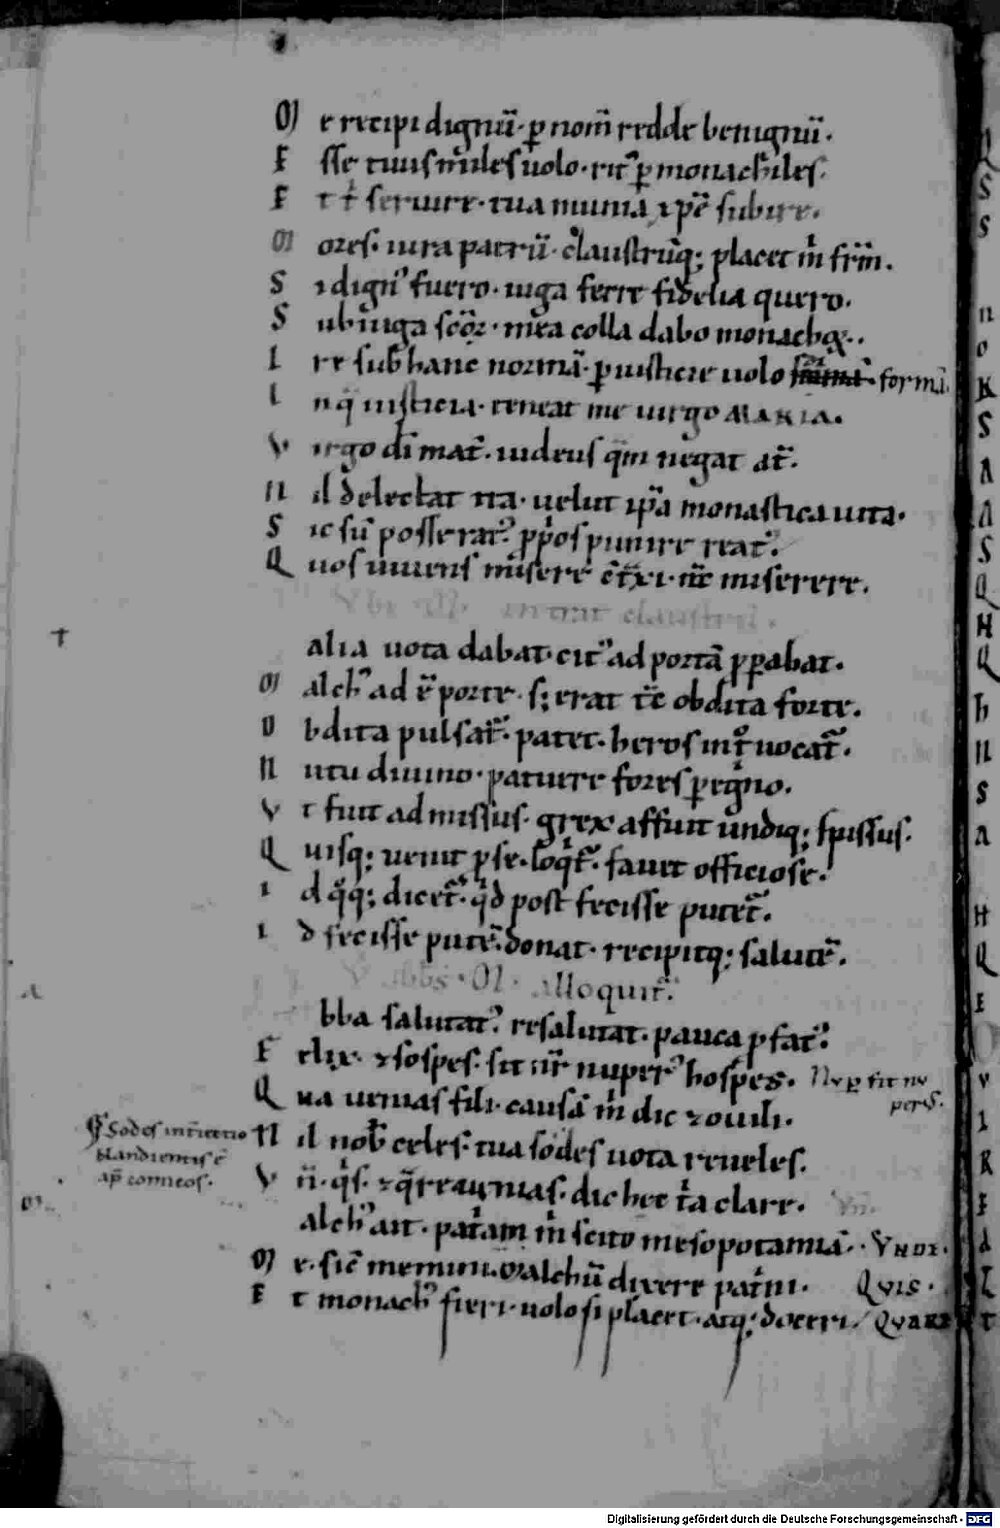 M e recipi dignū· ꝑ nom̄ redde benignū·
E sse tuus m̃iles uolo· rit᷒ ꝑ monachiles·
E t t̄ seruire· tua munia xp̄e subire·
M ores· iura patrū· claustrūq; placet m̄ fr̄m·
S i dign᷒ fuero· iuga ferre fidelia quero·
S ub iuga sc̄oꝝ· mea colla dabo monachoꝝ·
I re sub hanc normā· ꝑ iusticie uolo formā
I n qua iusticia· teneat me uirgo MARIA·
V irgo dī mat̃· iudeus quam negat at̃·
N il delectat ita· uelut ip̄a monastica uita·
S ic sū posse rat᷒ ꝓpͥos punire reat᷒·
Q uos uiuens misere ꝯtͣxi· nc̄ miserere·
intrat claustrū·
alia uota dabat· cit᷒ ad portā ꝓꝑabat·
M alch᷒ ad ē porte· s; erat tc̄ obdita forte·
O bdita pulsat᷑· patet· heros intͦ uocat᷑·
N utu diuino· patuere fores peregͥno·
V t fuit admissus· grex affuit undiq; spissus·
Q uisq; uenit ꝓ se· loqͥt᷑· fauet officiose·
I d qͦq; dicet᷑· qͥd post fecisse putet᷑·
I d fecisse putē· donat· recipitq; salutē·
abb̄s· M· alloquit᷑·
bba salutat᷒ resalutat· pauca p̄fat᷒·
F elix· ⁊ sospes· sit nr̄ nuper᷒ hospes· Nuꝑ fit nu
per᷒·
Q ua uenias fili· causā m̄ dic ⁊ ouili·
Sodes int̄iectio N il nob̄ celes· tua sodes uota reueles·
blandientis ē V n̄· qͥs· ⁊ qͣre aduenias· dic hec tͥa clare·
ap̄ comicos·
alch᷒ ait· patͥam m̄ scito mesopotamiā· VNDE·
M e· sic̄ memini· malchū dixere patͥni· QVIS·
E t monach᷒ fieri· uolo si placet· atq; doceri QVARE
Digitalisierung gefördert durch die Deutsche Forschungsgemeinschaft · DFG